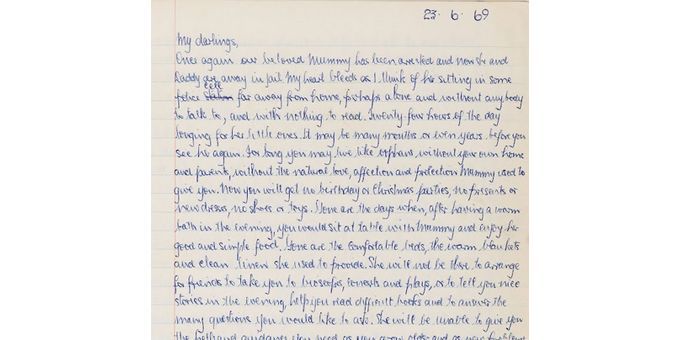 23. 6. 69
My darlings,
Once again our beloved Mummy has been arrested and now she and
Daddy are away in jail. My heart bleeds as I think of her sitting in some
police cell far away from home, perhaps alone and without anybody
to talk to, and with nothing to read. Twenty-four hours of the day
longing for her little ones. It may be many months or even years before you
see her again. For long you may live like orphans, without your own home
and parents, without the natural love, affection and protection Mummy used to
give you. Now you will get no birthday or Christmas parties, no presents or
new dresses, no shoes or toys. Gone are the days when, after having a warm
bath in the evening, you would sit at table with Mummy and enjoy her
good and simple food. Gone are the comfortable beds, the warm blankets
and clean linen she used to provide. She will not be there to arrange
for friends to take you to bioscopes, concerts and plays, or to tell you nice
stories in the evening, help you read difficult books and to answer the
many questions you would like to ask. She will be unable to give you
the help and guidance you need as you grow older and as new problems